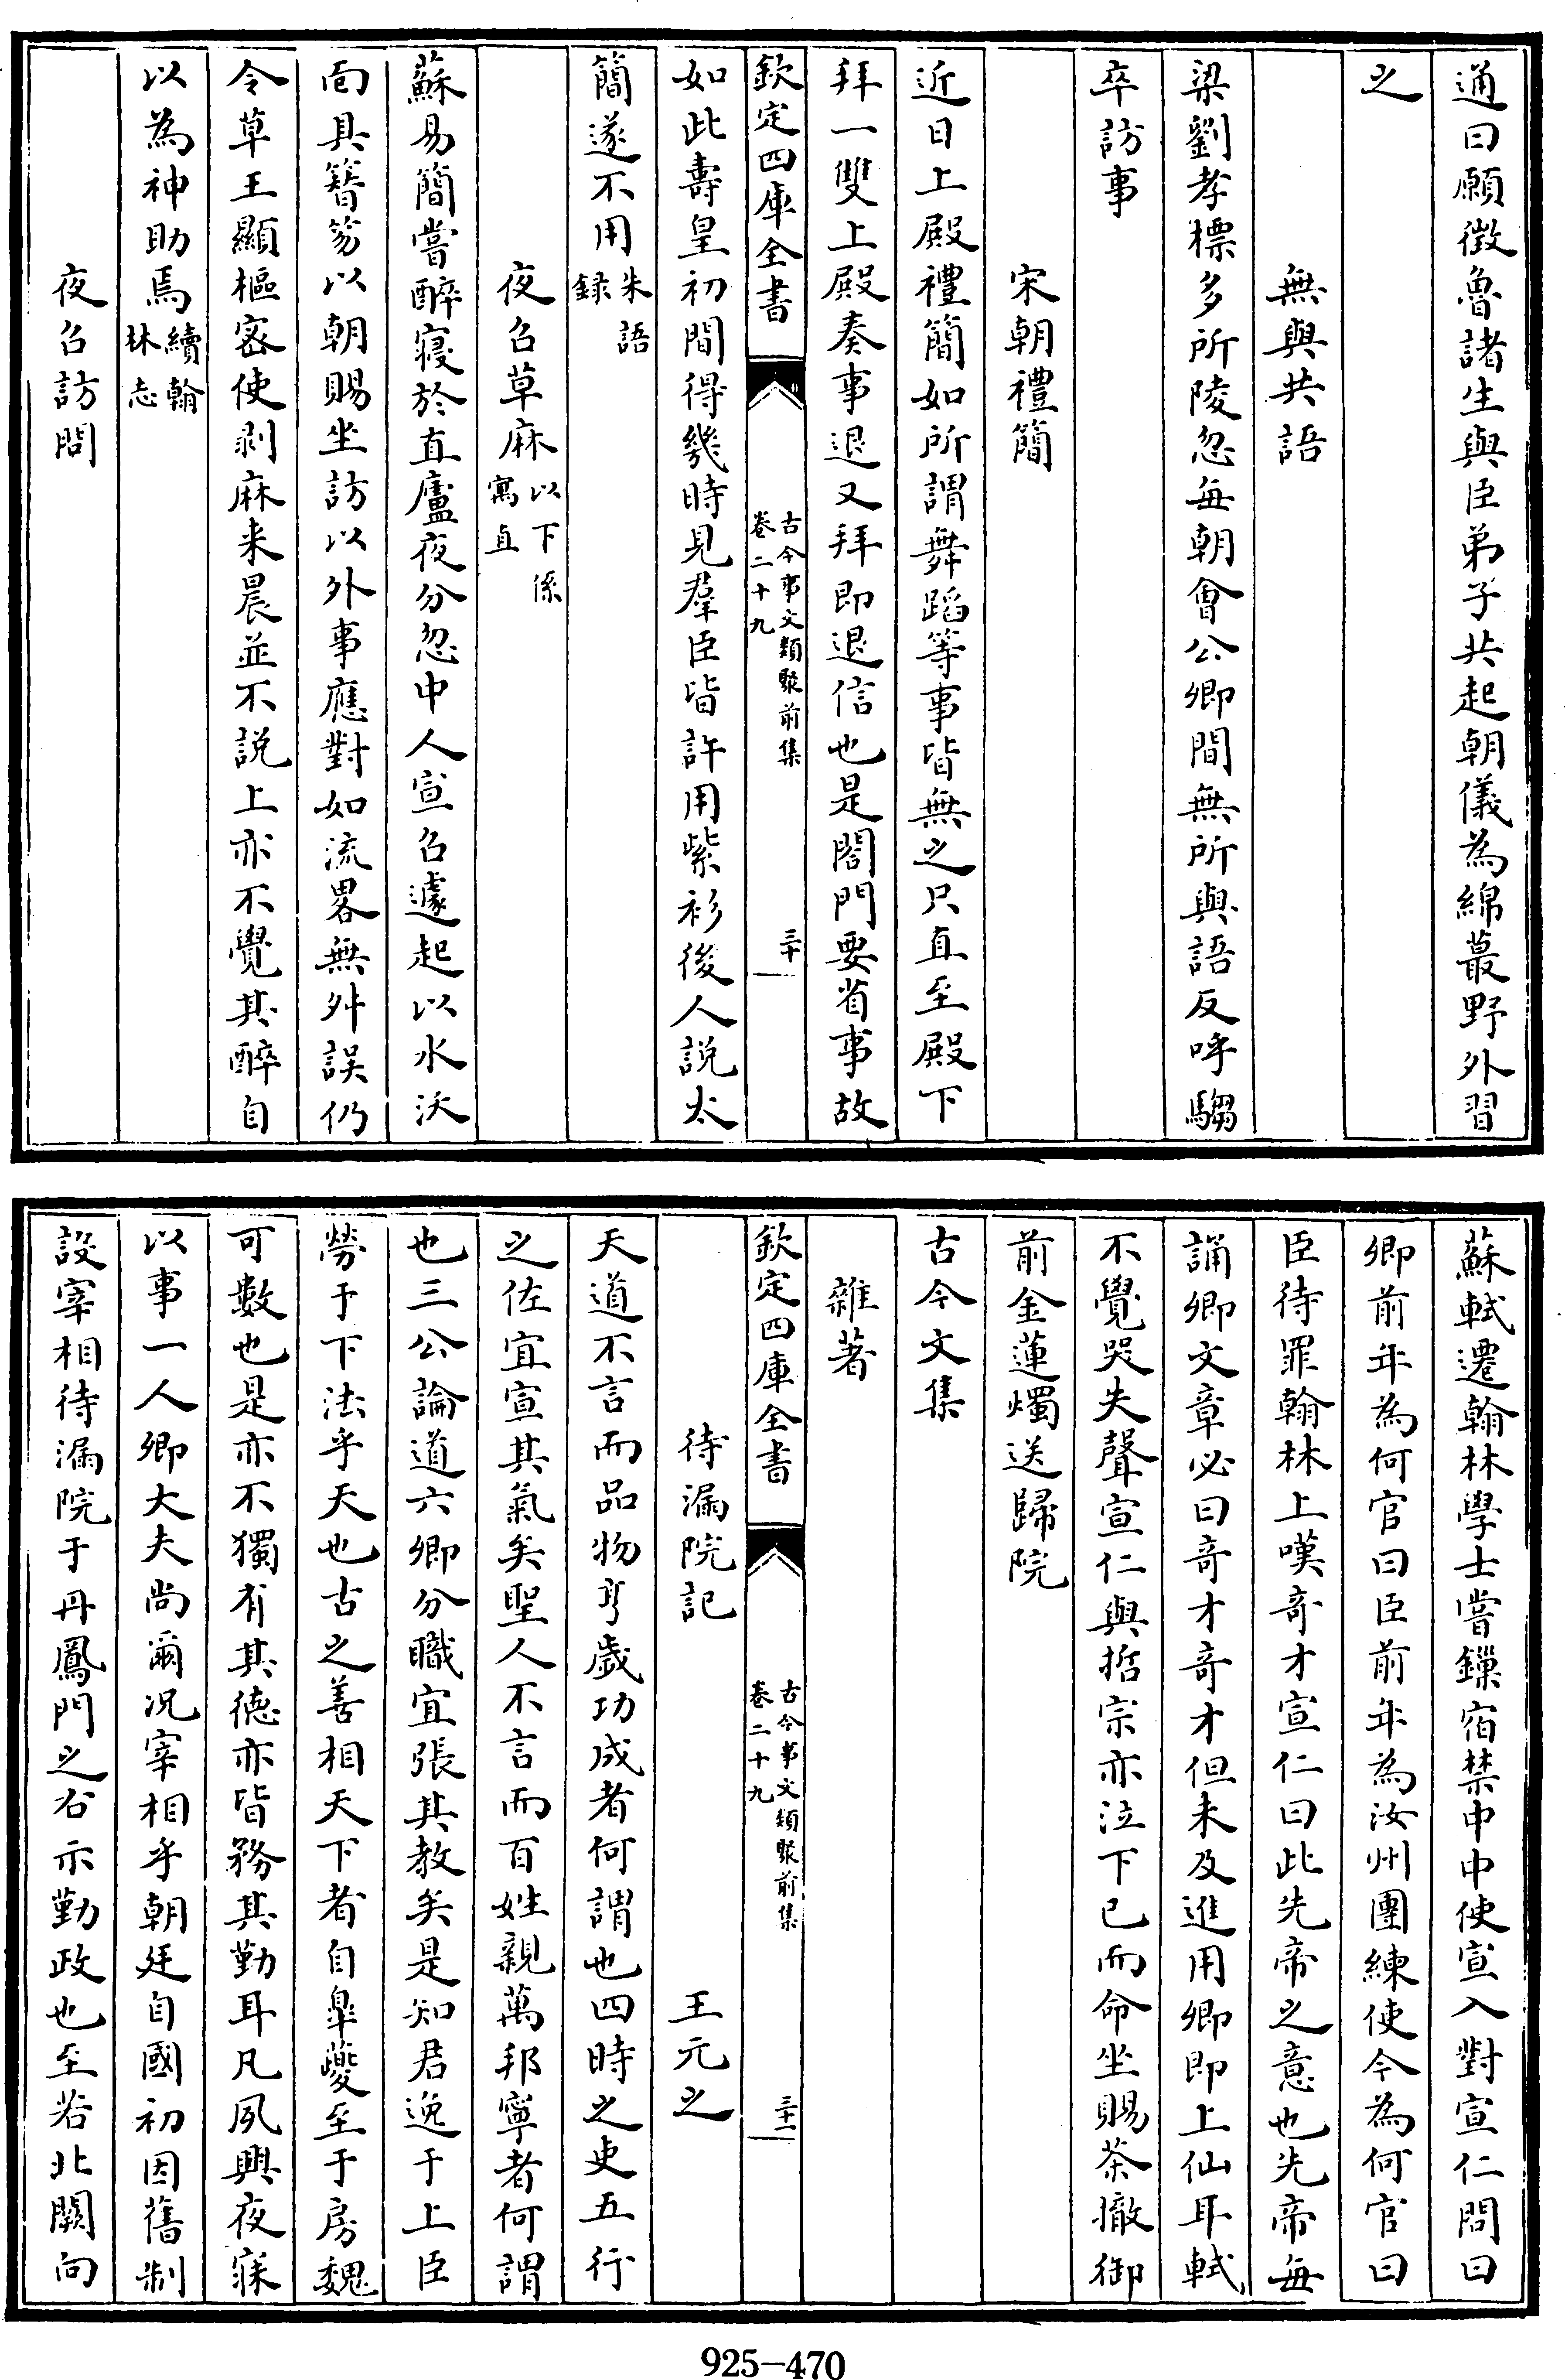 通曰願徴魯諸生與臣弟子共起朝儀為綿蕞野外習
之
無與共語
梁劉孝標多所陵忽毎朝會公卿間無所與語反呼騶
卒訪事
宋朝禮簡
近日上殿禮簡如所謂舞蹈等事皆無之只直至殿下
拜一雙上殿奏事退又拜即退信也是閤門要省事故
欽定四庫全書
古今事文類聚前集
卷二十九
三十
如此壽皇初間得幾時見羣臣皆許用紫衫後人說太
簡遂不用朱語録
夜召草麻以下係寓直
蘇易簡嘗醉寢於直廬夜分忽中人宣召遽起以水沃
面具簪笏以朝賜坐訪以外事應對如流畧無舛誤仍
令草王顯樞密使剥麻来晨並不說上亦不覺其醉自
以為神助焉續翰林志
夜召訪問
蘇軾遷翰林學士嘗鏁宿禁中中使宣入對宣仁問曰
卿前年為何官曰臣前年為汝州團練使今為何官曰
臣待罪翰林上嘆奇才宣仁曰此先帝之意也先帝毎
誦卿文章必曰奇才奇才但未及進用卿即上仙耳軾
不覺哭失聲宣仁與哲宗亦泣下已而命坐賜茶撤御
前金蓮燭送歸院
古今文集
雜著
欽定四庫全書
古今事文類聚前集
卷二十九
三十一
待漏院記 王元之
天道不言而品物亨歲功成者何謂也四時之吏五行
之佐宜宣其氣矣聖人不言而百姓親萬邦寧者何謂
也三公論道六卿分職宜張其教矣是知君逸于上臣
勞于下法乎天也古之善相天下者自臯夔至于房魏
可數也是亦不獨有其徳亦皆務其勤耳凡夙興夜寐
以事一人卿大夫尚爾况宰相乎朝廷自國初因舊制
設宰相待漏院于丹鳳門之右示勤政也至若北闕向
925-470